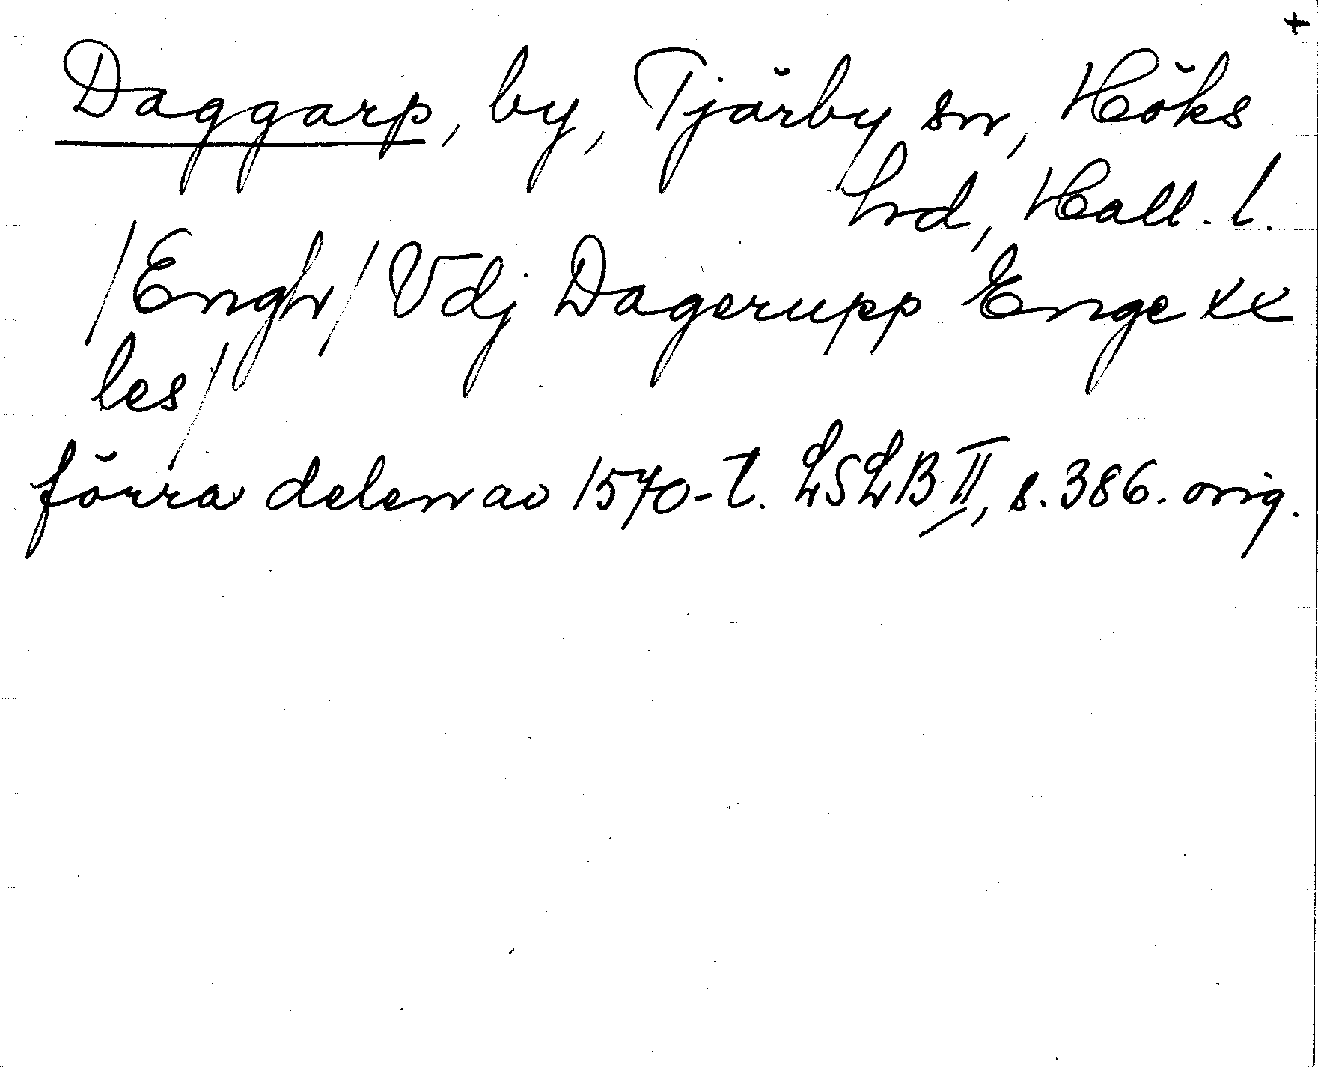 +
Daggarp, by, Tjärby sn, Höks
hd, Hall. l.
/Engh/ Vdj Dagerupp Enge xx
les/
förra delen av 1570-t. LSLB II, s. 386. orig.